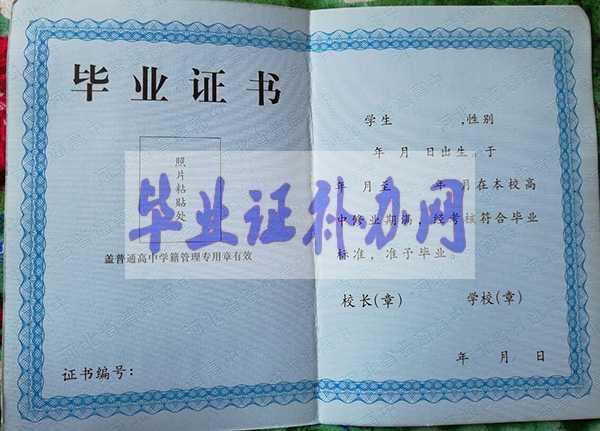 毕业证书
照片粘贴处
盖普通高中学籍管理专用章有效
证书编号：
学生 ,性别
年 月 日出生,于
年 月至 年 月在本校高
中修业期满，经考核符合毕业
标准，准予毕业。
校长(章) 学校(章)
年 月 日
毕业证补办网